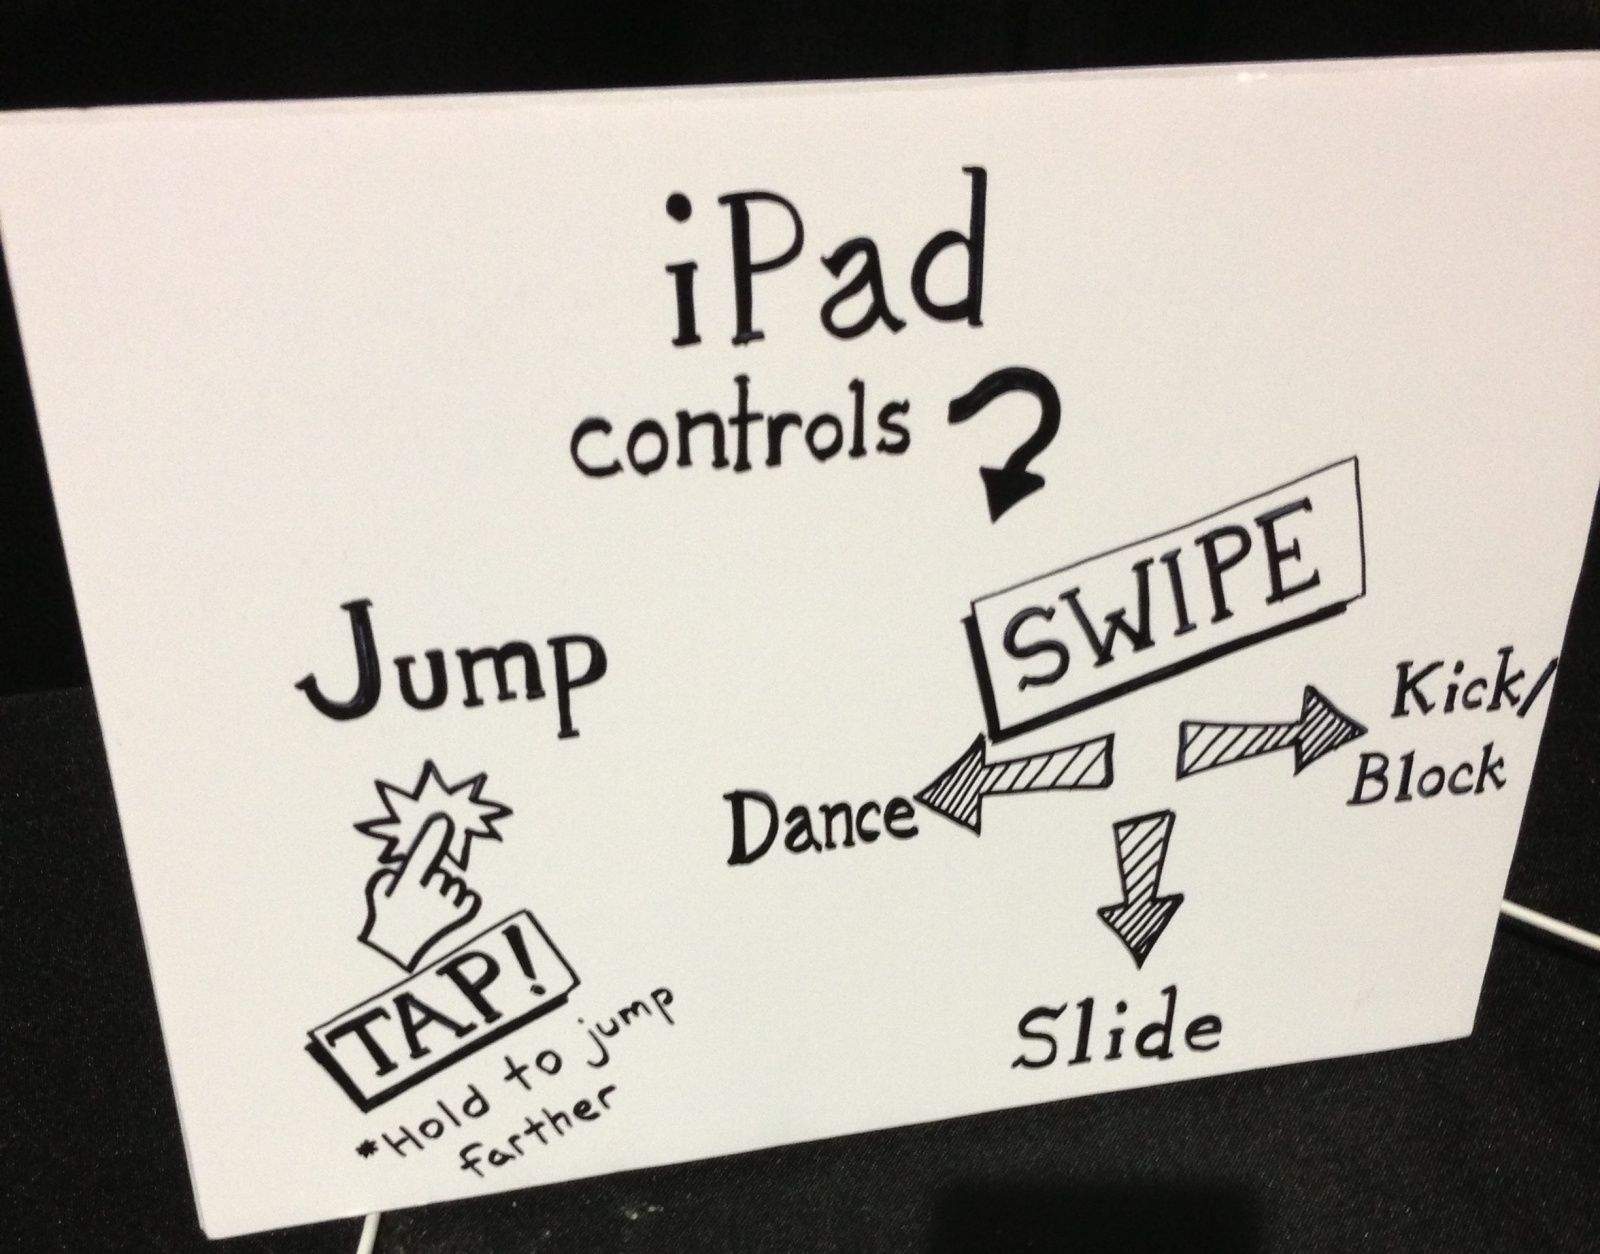 iPad
controls
Jump
TAP!
*Hold to jump
farther
SWIPE
Dance
Kick/
Block
Slide